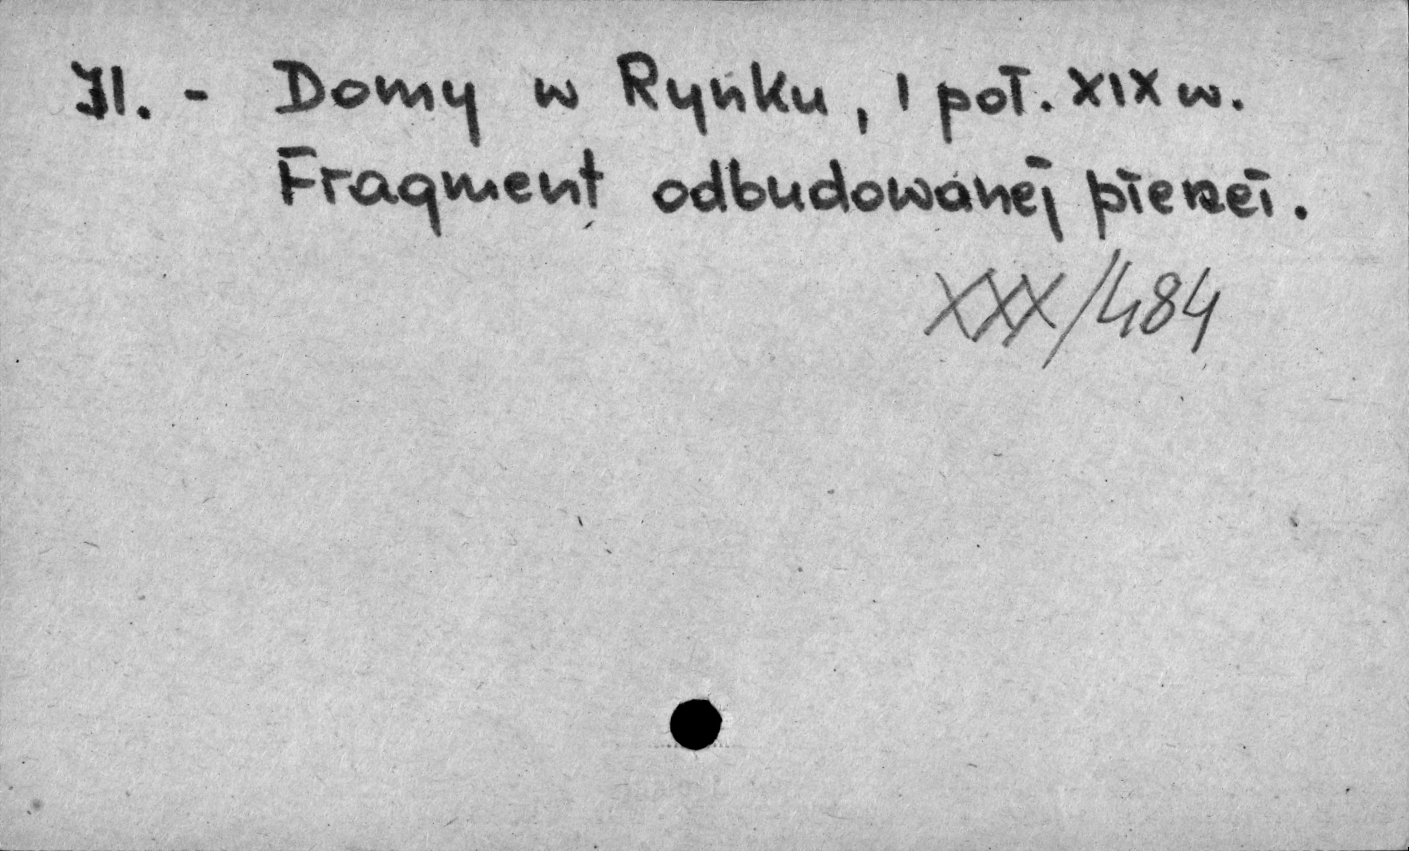 Il. - Domy w Rynku, I poł. XIX w.
Fragment odbudowanej pierzei.
XXX/484